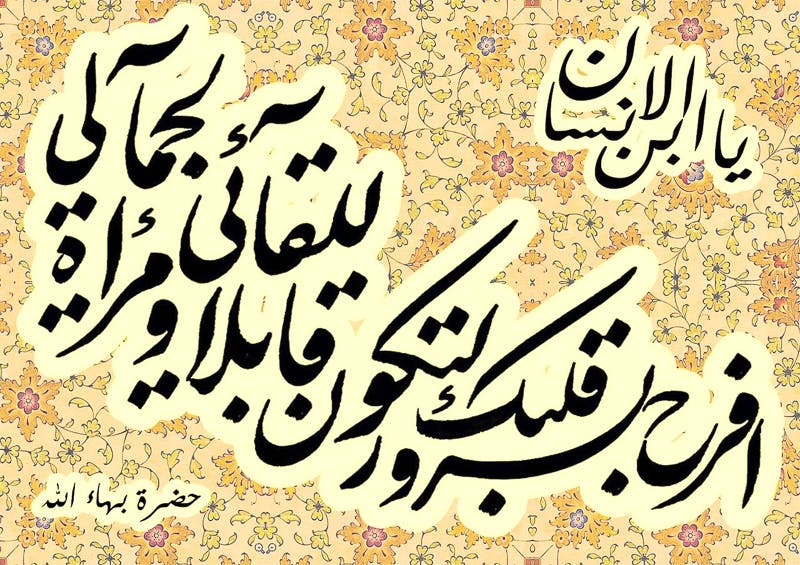 يا ابن الانسان
افرح بسرور قلبك لتكون قابلا للقآئي و مرأة لجمآلي
حضرة بهاء الله